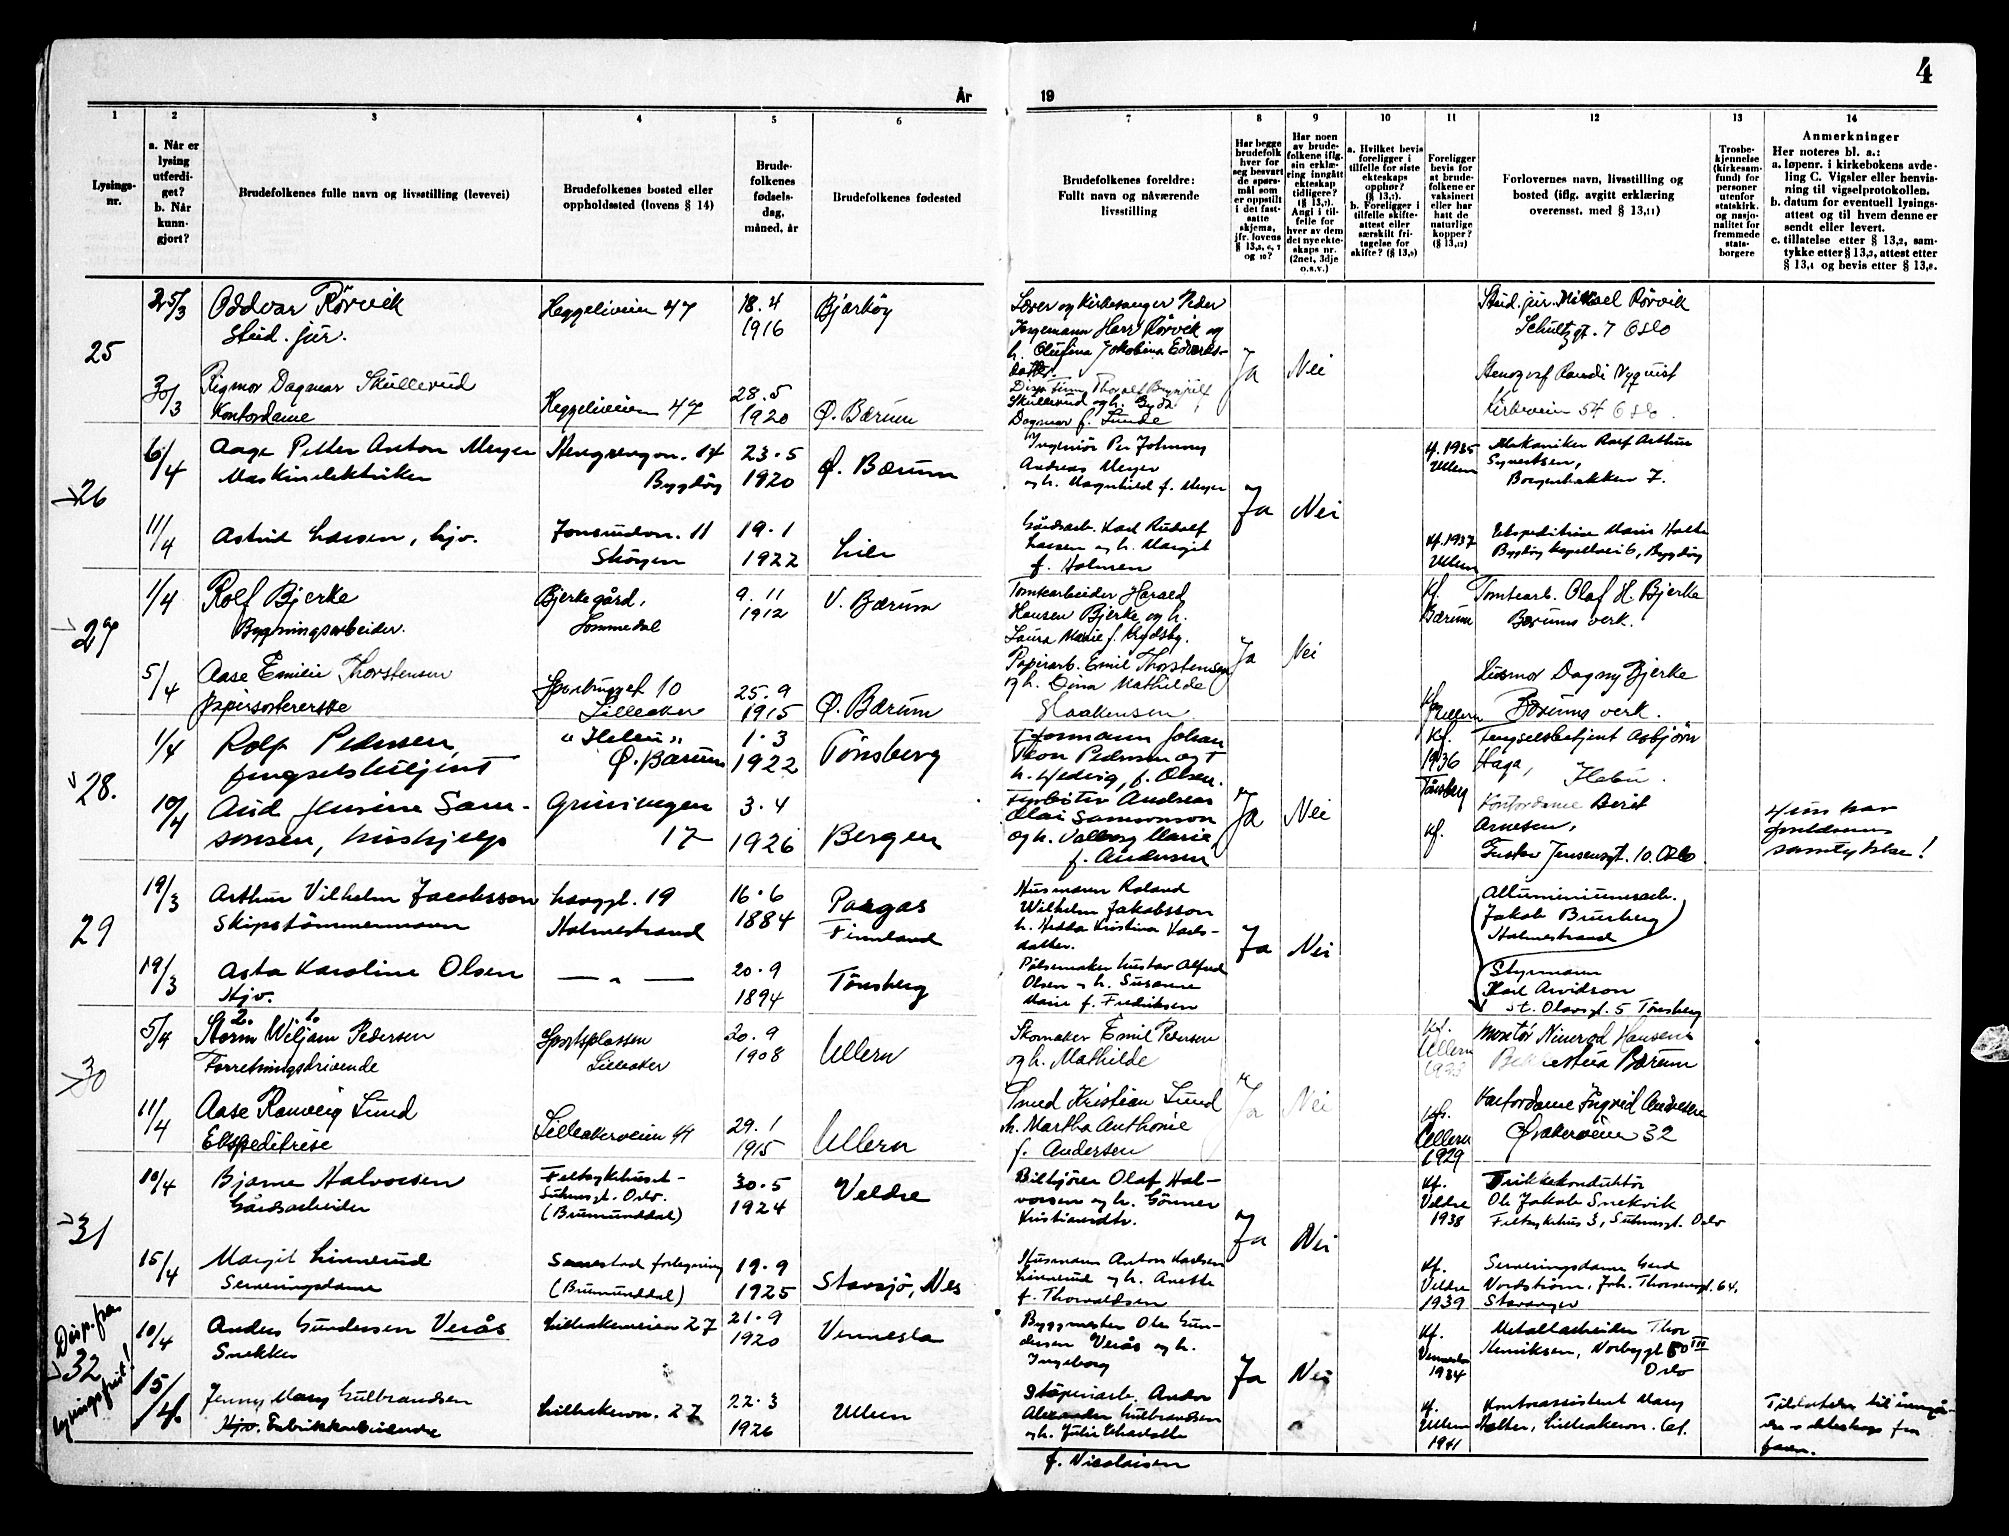 4
År
19
1
2
3
4
5
6
7
8
9
10
11
12
13
14
Lysings-
nr.
a. Når er
lysing
utferdi-
get?
b. Når
kunn-
gjort?
Brudefolkenes fulle navn og livsstilling (levevei)
Brudefolkenes bosted eller
oppholdssted (lovens § 14)
Brude-
folkenes
fødsels-
dag,
måned, år
Brudefolkenes fødested
Brudefolkenes foreldre:
Fullt navn og nåværende
livsstilling
Har begge
brudefolk
hver for
seg besvart
de spørs-
mål som
er oppstilt
i det fast-
satte
skjema,
jfr. lovens
§ 13,5, 6, 7
og 10?
Har noen
av brude-
folkene ifl.
sin erklæ-
ring inngått
ekteskap
tidligere?
(§ 13,7).
Angi i til-
felle for
hver av dem
det nye ekte-
skaps nr.
(2net, 3dje
o.s.v.)
a. Hvilket bevis
foreligger i
tilfelle for siste
ekteskaps
opphør?
(§ 13,7).
b. Foreligger i
tilfelle skifte-
attest eller
særskilt fri-
tagelse for
skifte? (§ 13,9)
Foreligger
bevis for
at brude-
folkene er
vaksinert
eller har
hatt de
naturlige
kopper?
(§ 13,12)
Forlovernes navn, livsstilling og
bosted (iflg. avgitt erklæring
overensst. med § 13,11)
Trosbe-
kjennelse
(kirkesam-
fund) for
personer
utenfor
statskirk.
og nasjo-
nalitet for
fremmede
stats-
borgere
Anmerkninger
Her noteres bl. a.:
a. løpenr. i kirkebokens avde-
ling C. Vigsler eller henvis-
ning til vigselprotokollen.
b. datum for eventuell lysings-
attest og til hvem denne er
sendt eller levert.
c. tillatelse etter § 13,2, sam-
tykke etter § 13,3, attest etter
§ 13,4 og bevis etter § 13,8.
25
25/3
Oddvar Rørvik
Stud. jur.
Heggeliveien 47
18.4
1916
Bjarkøy
Lærer og kirkesanger Peder
Jørgemann Harr Rørvik og
h. Olufina Jakobina Edvards-
datter.
Ja
Nei
Stud. jur. Mikael Rørvik
Schultzgt. 7 Oslo
30/3
Rigmor Dagmar Skullerud
Kontordame
Heggeliveien 47
28.5
1920
Ø. Bærum
Skullerud og h.
Dagmar f. Lunde
Randi Nyquist
Kirkeveien 54 Oslo.
26
6/4
Aage Petter Anton Meyer
Maskinelektriker
14
Bygdøy
23.5
1920
Ø. Bærum
Ingeniør Per Johnny
Andreas Meyer
og h. Magnhild f. Meyer
Ja
Nei
kf. 1935
Ullern
Mekaniker Rolf Arthur
Syvertsen,
Borgenbakken 7.
11/4
Astrid Larsen, hjv.
Jonsrudvn. 11
Skøyen
19.1
1922
Lier
Gårdsarb. Karl Rudolf
Larsen og h. Margit
f. Holmen
kf. 1937
Ullern
Ekspeditrise Maris Holte
Bygdøy kapellvei 6, Bygdøy
27
1/4
Rolf Bjerke
Bygningsarbeider.
Bjerke gård,
Lommedal
9.11
1912
V. Bærum
Tomtearbeider Harald
Hansen Bjerke og h.
Laura Marie f.
Ja
Nei
Kf.
Bærum
Tomtearb. Olaf H. Bjerke
Bærums verk.
5/4
Aase Emilie Thorstensen
papirsortererske
10
Lilleaker
25.9
1915
Ø. Bærum
Papirarb. Emil Thorstensen
og h. Dina Mathilde
Haakensen
Kf.
Ullern
Dagny Bjerke
Bærums verk.
28.
1/4
Rolf Pedersen,
fengselsbetjent
"Ilebu"
Ø. Bærum
1.3
1922
Tønsberg
Formann Johan
Pedersen og
h. Hedvig, f. Olsen.
Ja
Nei
Kf.
1936
Tønsberg
Fengselsbetjent Asbjørn
Haga,
Ilebu.
10/4
Aud Jensine Sam-
sonsen, hushjelp
Griniveien
17
3.4
1926
Bergen
Fyrbøter Andreas
Olai Samsonson
og h. Valborg Marie,
f. Andersen
kf.
Kontordame Berit
Arnesen,
Gustav Jensensgt. 10. Oslo
Hun har
foreldrenes
samtykke!
29
19/3
Arthur Vilhelm Jacobsson
Skipstømmermann
Langgt. 19
Holmestrand
16.6
1884
Pargas
Finnland
Husmann Roland
Wilhelm Jakobsson
h. Hedda Kristina Karls-
datter.
Ja
Nei
Alluminiumsarb.
Jakob Brusberg
Holmestrand
19/3
Asta Karoline Olsen
Hjv.
— " —
20.9
1894
Tønsberg
Pølsemaker Gustav Alfred
Olsen og h. Susanne
Marie f. Fredriksen
Styrmann
Karl Arvidson
St. Olavsgt. 5 Tønsberg
30
5/4
2. 1.
Storm Wiljam Pedersen
Forretningsdrivende
Sportsplassen
Lilleaker
20.9
1908
Ullern
Skomaker Emil Pedersen
og h. Mathilde
Ja
Nei
Kf.
Ullern
Montør Nimrod Hansen
Bekkestua Bærum
11/4
Aase Ranveig Lund
Ekspeditrise
Lilleakerveien
29.1
1915
Ullern
Smed Kristian Lund
h. Martha Anthonie
f. Andersen
Kf.
Ullern
1929
Kontordame Ingrid Andersen
Øvrakerveien 32
31
10/4
Bjarne Halvorsen
Gårdsarbeider
Feltsykehuset
Suhmsgt. Oslo.
(Brumunddal)
30.5
1924
Veldre
Bilkjører Olaf Hal-
vorsen og h. Gunner
Kristiansdtr.
Ja
Nei
kf.
Veldre
1938
Trikkekonduktør
Ole Jakob Snekvik
Feltsykehus 3, Suhmsgt. Oslo
15/4
Margit Linnerud
Serveringsdame
forlegning
(Brumunddal)
19.9
1925
Stavsjø, Nes
Husmann Anton Karlsen
Linnerud og h. Anette
f. Thorvaldsen
kf.
Veldre
1939
Serveringsdame Gerd
Nordstrøm, Joh. Thorsensgt. 64,
Stavanger
Disp. fra
32
lysingsfrist!
10/4
Anders Gundersen Verås
Snekker
Lilleakerveien 27
21.9
1920
Vennesla
Byggmester Ole Gun-
dersen Verås og h.
Ingeborg
Ja
Nei
kf.
Vennesla
1934
Metallarbeider Thor
Henriksen, Norbygt 50 III
Oslo
15/4.
Jenny Mary Gulbrandsen
Hjv. Fabrikkarbeiderske
Lilleakervn. 27
22.3
1926
Ullern
Støperiarb. Andor
Alexander Gulbrandsen
og h. Julie Charlotte
f. Nicolaisen
kf.
Ullern
1941
Kontorassistent Mary
Holter, Lilleakervn.
Tillatelse til inngå-
else av ekteskap fra
faren.